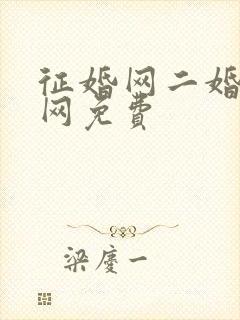 征婚网二婚
网免费
梁庆一